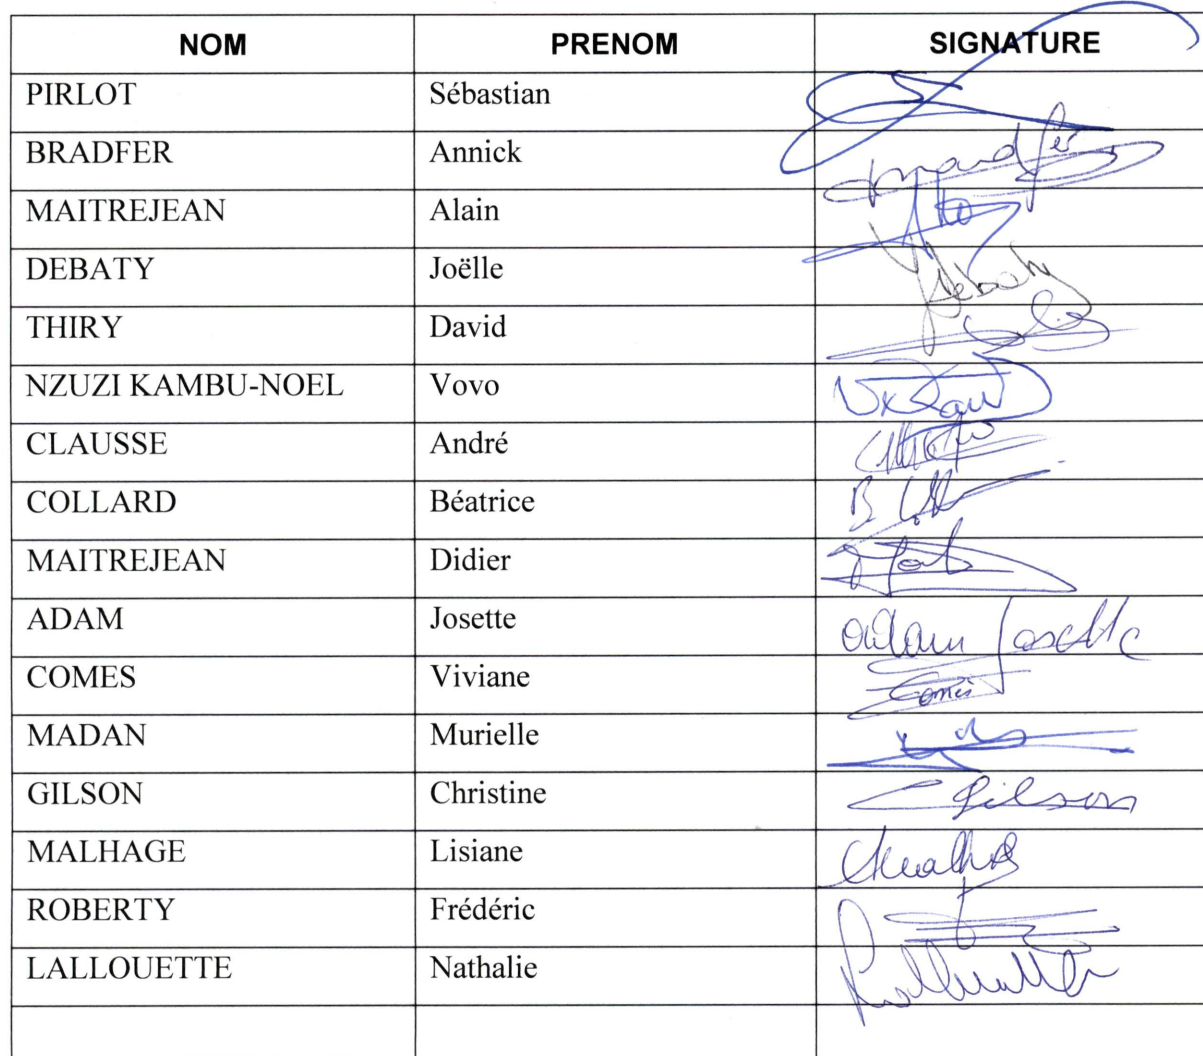 NOM PRENOM SIGNATURE
PIRLOT Sébastian
BRADFER Annick
MAITREJEAN Alain
DEBATY Joëlle Debaty
THIRY David
NZUZI KAMBU-NOEL Vovo
CLAUSSE André
COLLARD Béatrice
MAITREJEAN Didier
ADAM Josette adam Josette
COMES Viviane Comès
MADAN Murielle
GILSON Christine C Gilson
MALHAGE Lisiane
ROBERTY Frédéric
LALLOUETTE Nathalie